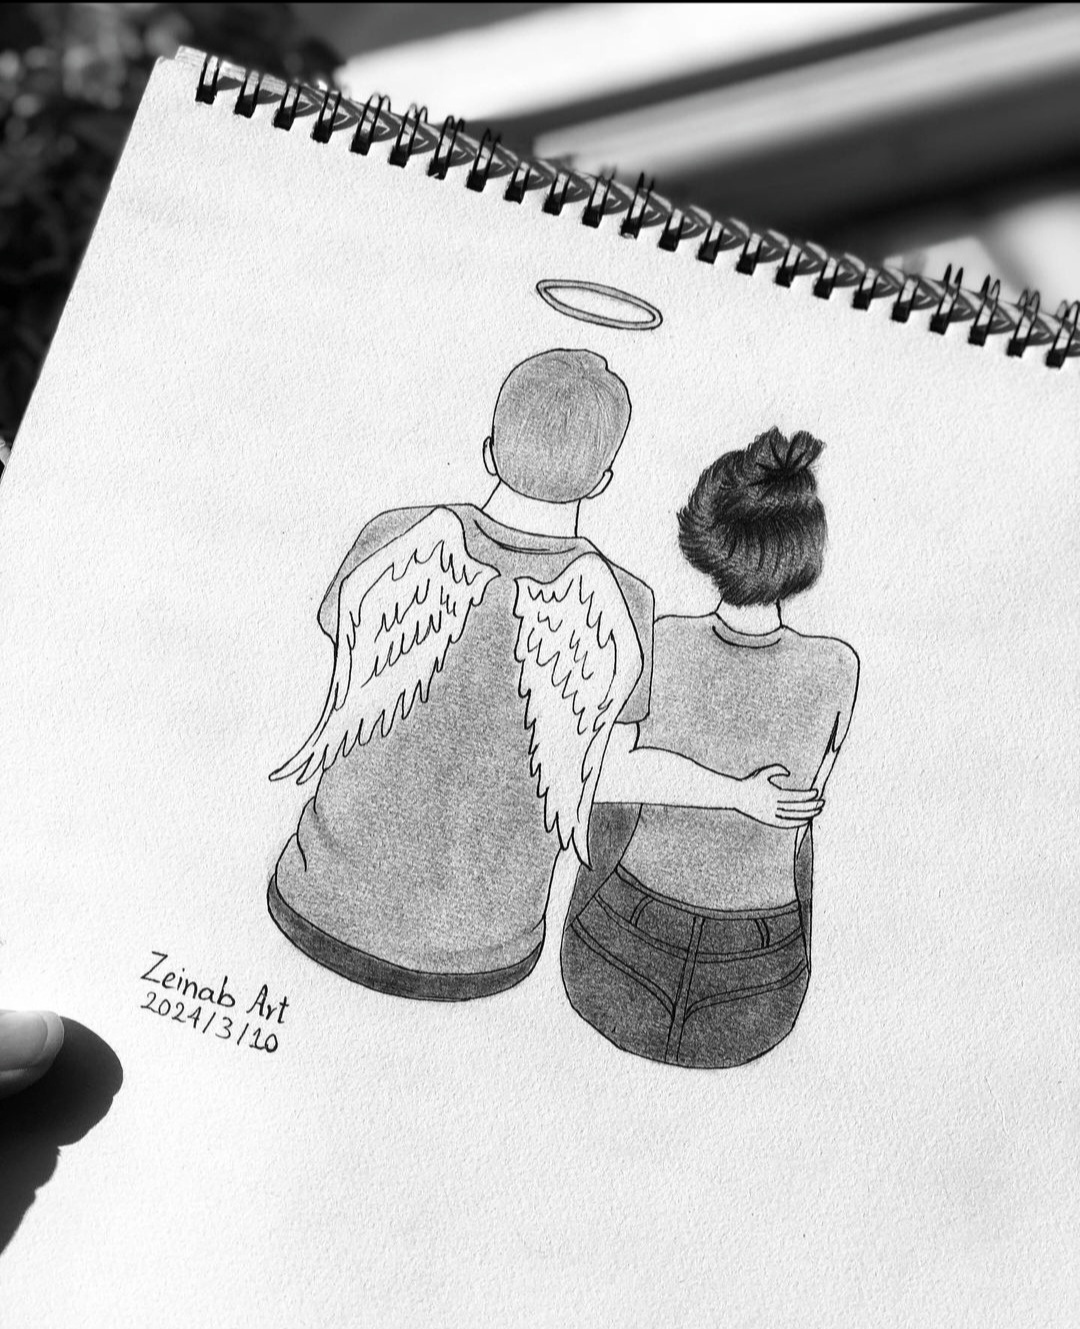 Zeinab Art
2024/3/10